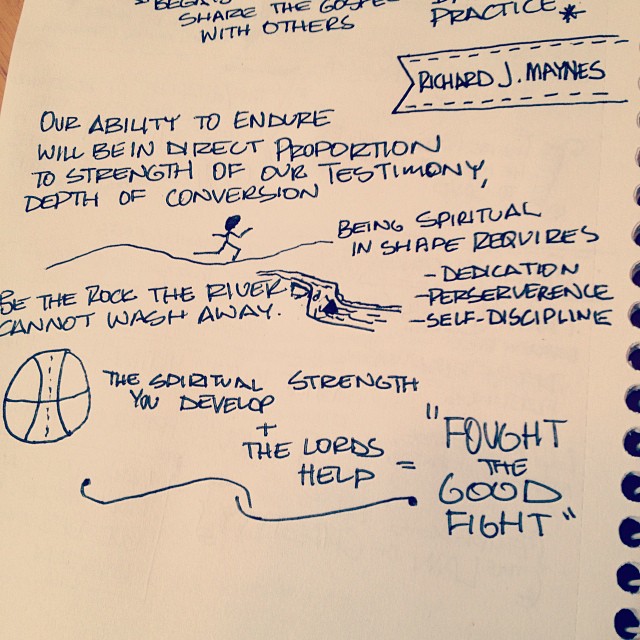 SHARE THE GOSPEL
WITH OTHERS
PRACTICE*
RICHARD J. MAYNES
OUR ABILITY TO ENDURE
WILL BE IN DIRECT PROPORTION
TO STRENGTH OF OUR TESTIMONY,
DEPTH OF CONVERSION
BEING SPIRITUAL
IN SHAPE REQUIRES
-DEDICATION
-PERSERVERENCE
-SELF-DISCIPLINE
BE THE ROCK THE RIVER
CANNOT WASH AWAY.
THE SPIRITUAL STRENGTH
YOU DEVELOP
+
THE LORDS
HELP =
"FOUGHT
THE
GOOD
FIGHT"